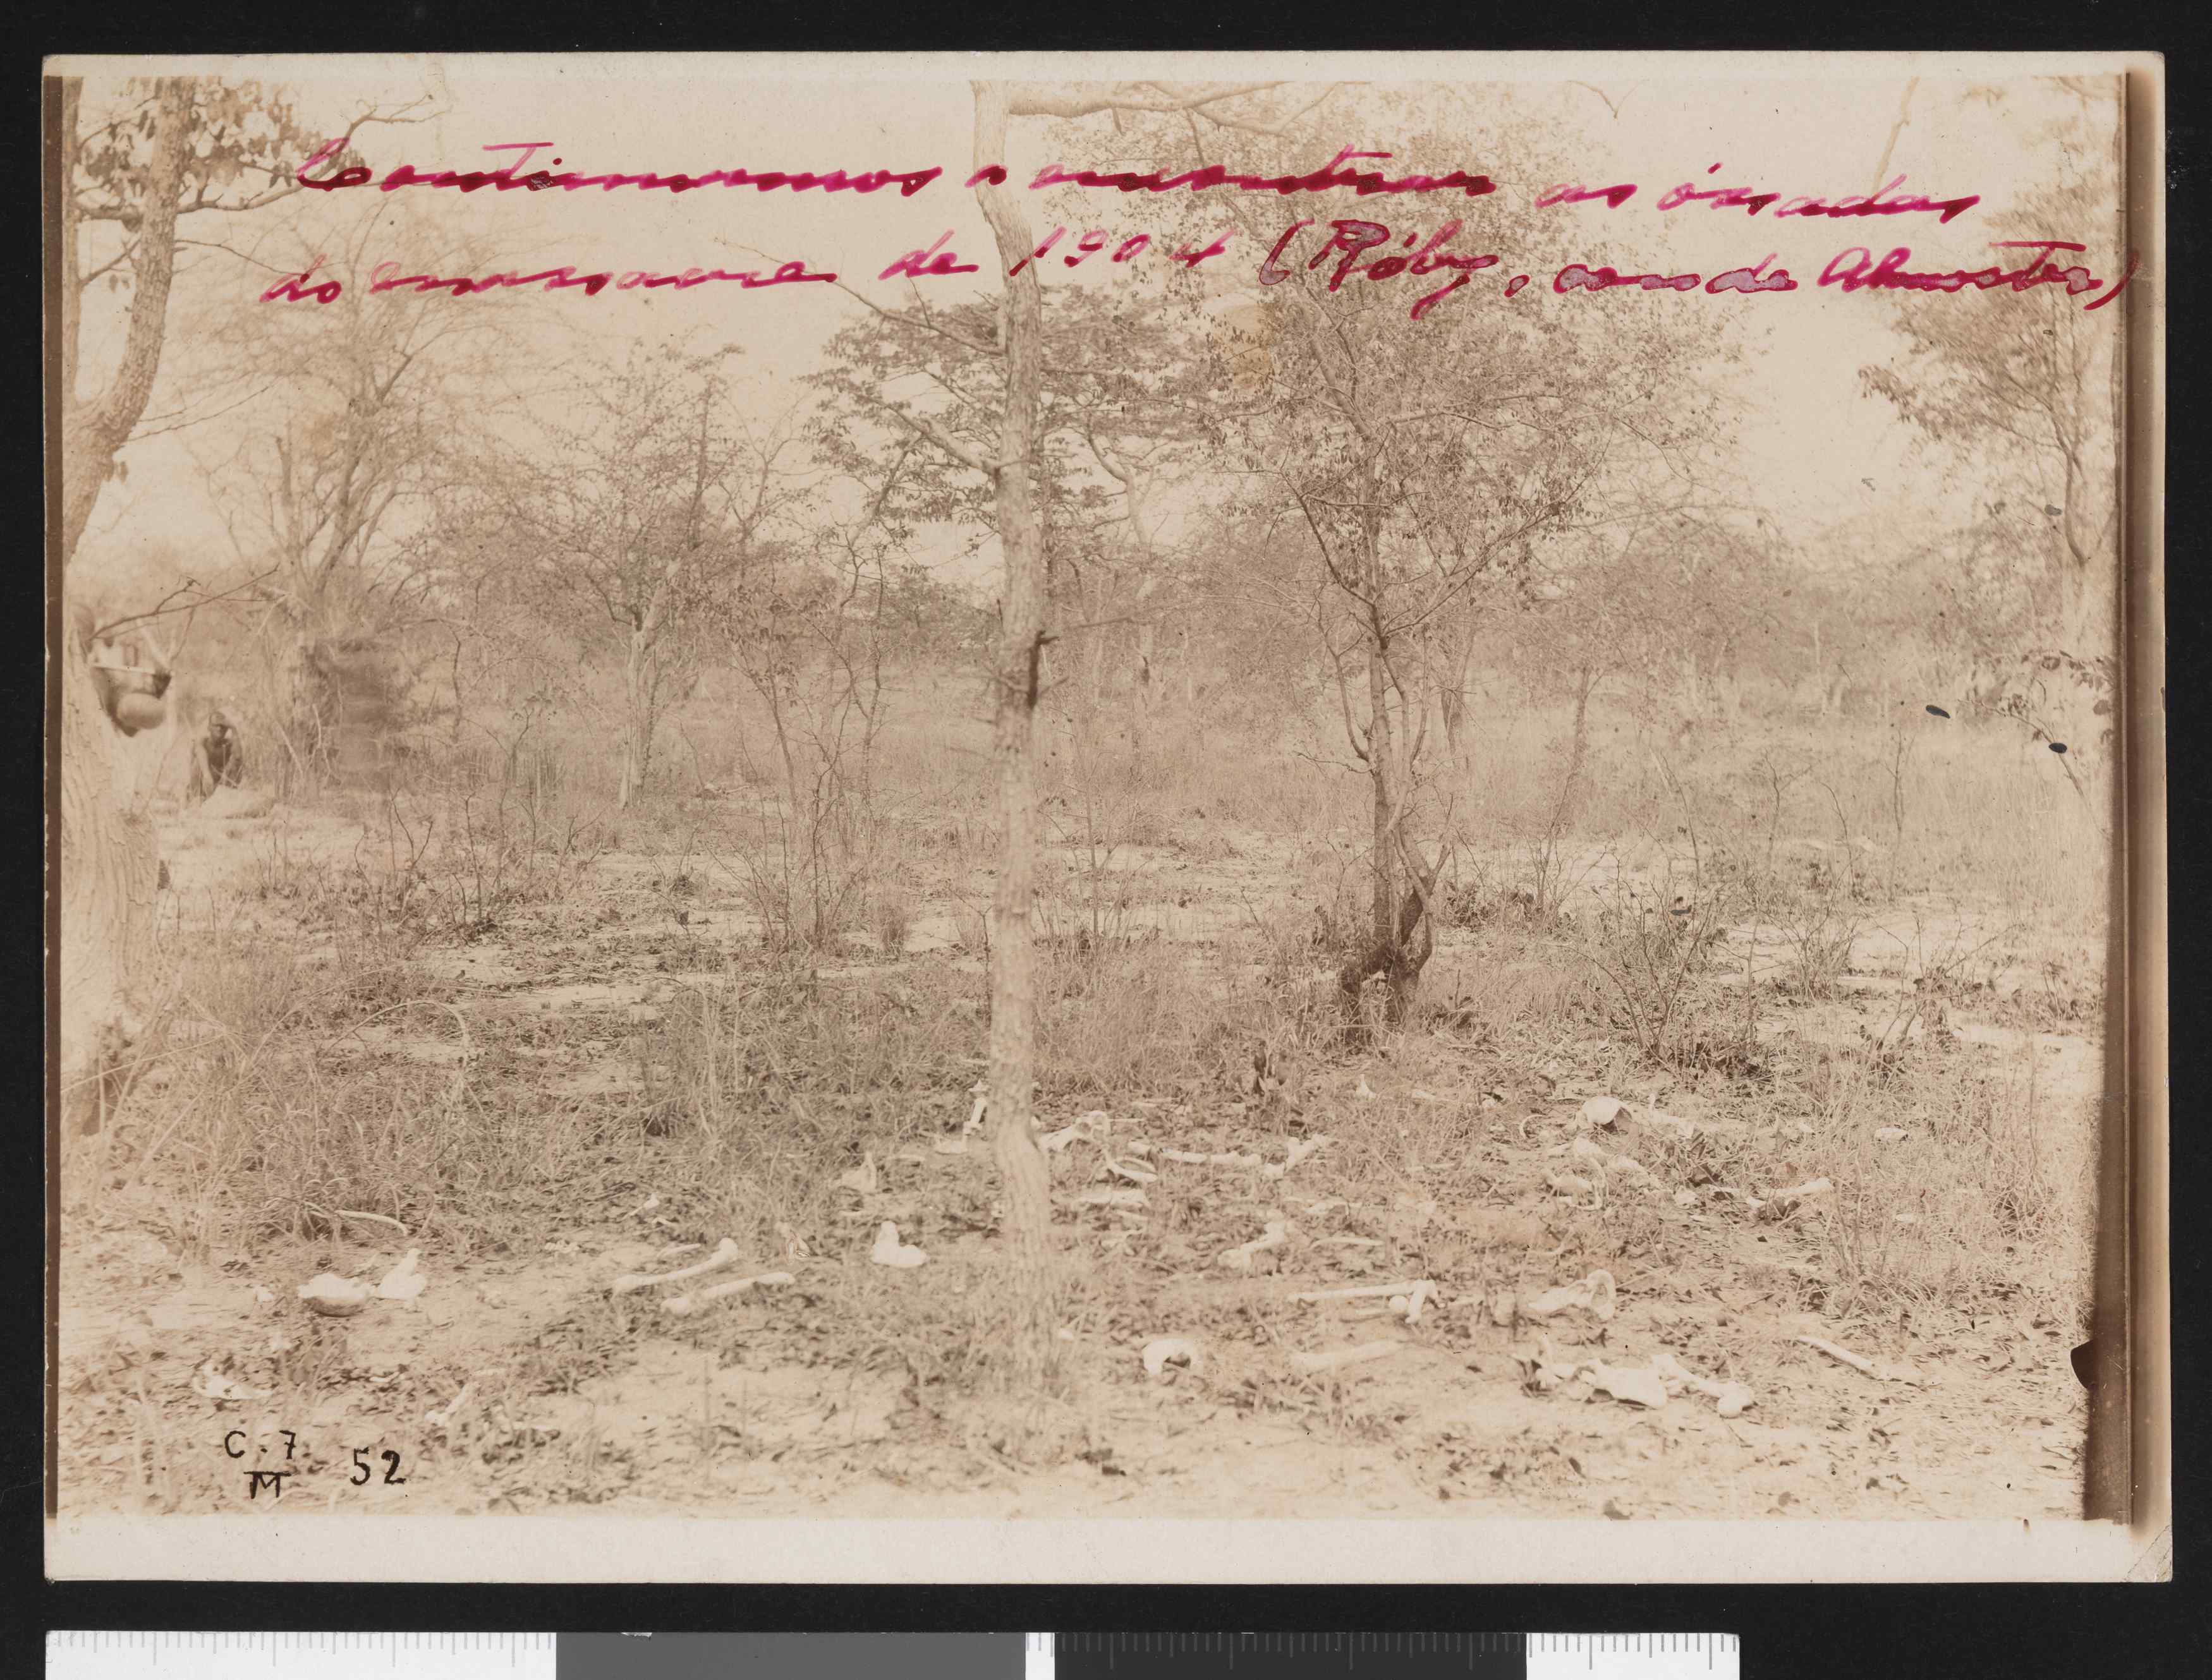 Continuamos a encontrar as ósadas
do massacre de 1904 (Róby, conde Almoster)
C. 7 52
M